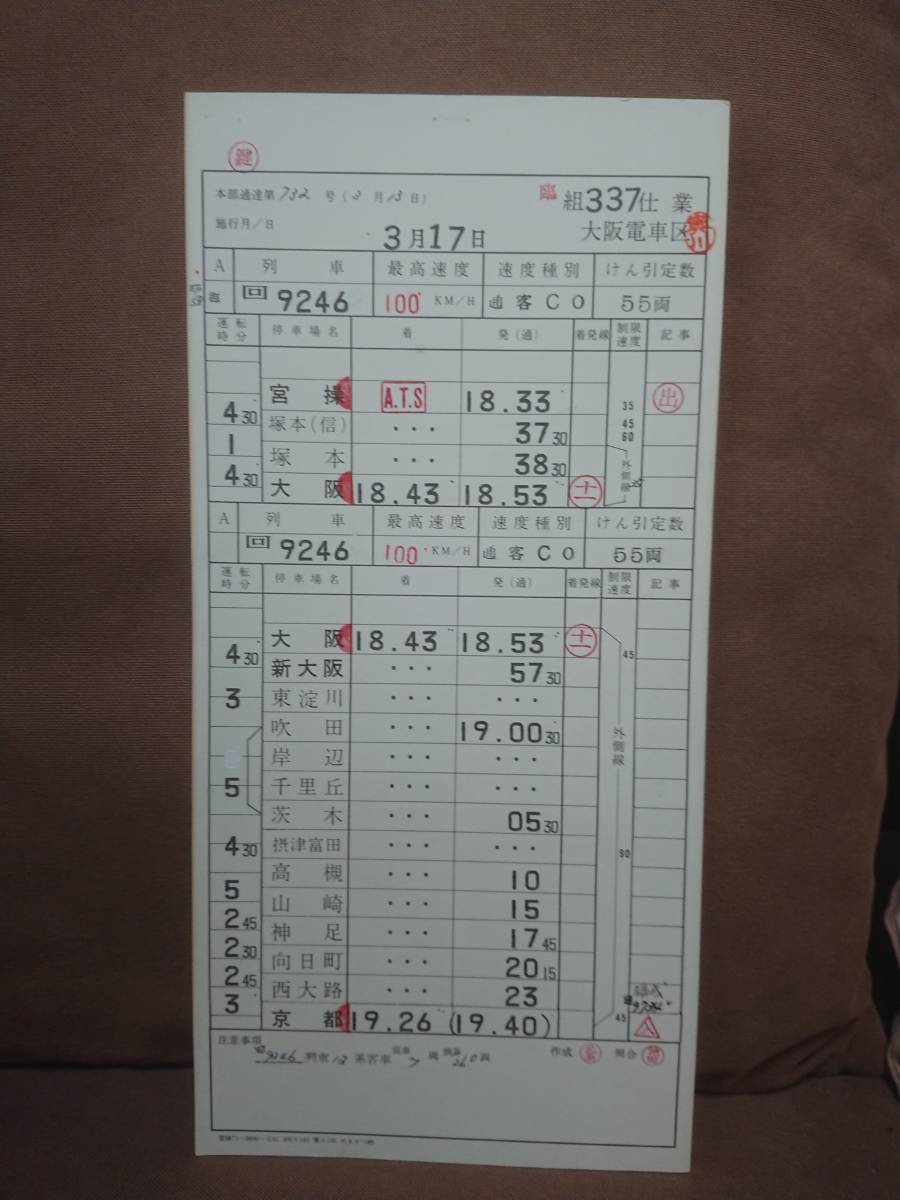 鍵
本部通達第732号(3月13日) 臨 組337仕業
施行月/日 3月17日 大阪電車区
A 列車 最高速度 速度種別 けん引定数
回9246 100 KM/H 通客C0 55両
運転時分 停車場名 着 発(通) 着発線 制限速度 記事
宮操 A.T.S 18.33 35 出
430 塚本(信) ・・・ 3730 45
1 塚本 ・・・ 3830 60 外側線
430 大阪 18.43 18.53 十一
A 列車 最高速度 速度種別 けん引定数
回9246 100 KM/H 通客C0 55両
運転時分 停車場名 着 発(通) 着発線 制限速度 記事
大阪 18.43 18.53 十一
430 新大阪 ・・・ 5730 45
3 東淀川 ・・・ ・・・
吹田 ・・・ 19.0030 外側線
岸辺 ・・・ ・・・
5 千里丘 ・・・ ・・・
茨木 ・・・ 0530
430 摂津富田 ・・・ ・・・ 90
高槻 ・・・ 10
5 山崎 ・・・ 15
245 神足 ・・・ 1745
230 向日町 ・・・ 2015
245 西大路 ・・・ 23
3 京都 19.26 (19.40) 45 入
注意事項
回9246列車は客車 7両 換算26.0両 作成 照合